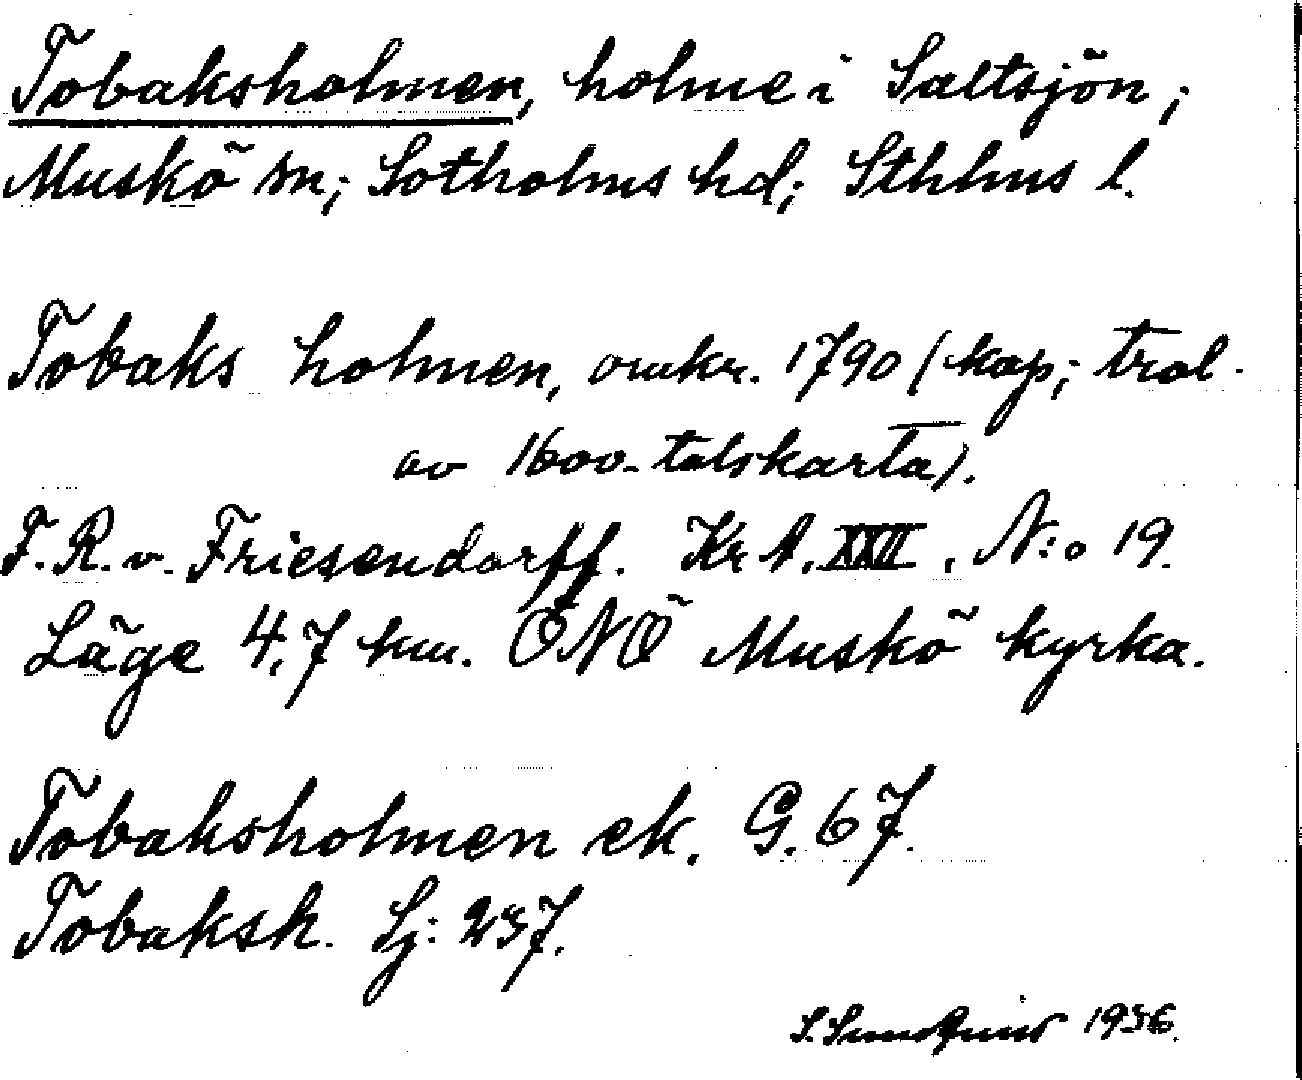 Tobaksholmen, holme i Saltsjön;
Muskö sn; Sotholms hd; Sthlms l.
Tobaks holmen, omkr. 1790 (kop; trol.
av 1600-talskarta).
F.R.v. Friesendorff. Kr A. XXII. N:o 19.
Läge 4,7 km. ÖNÖ Muskö kyrka.
Tobaksholmen ek. G. 67.
Tobaksh. Sj: 237.
S. Sundquist 1936.